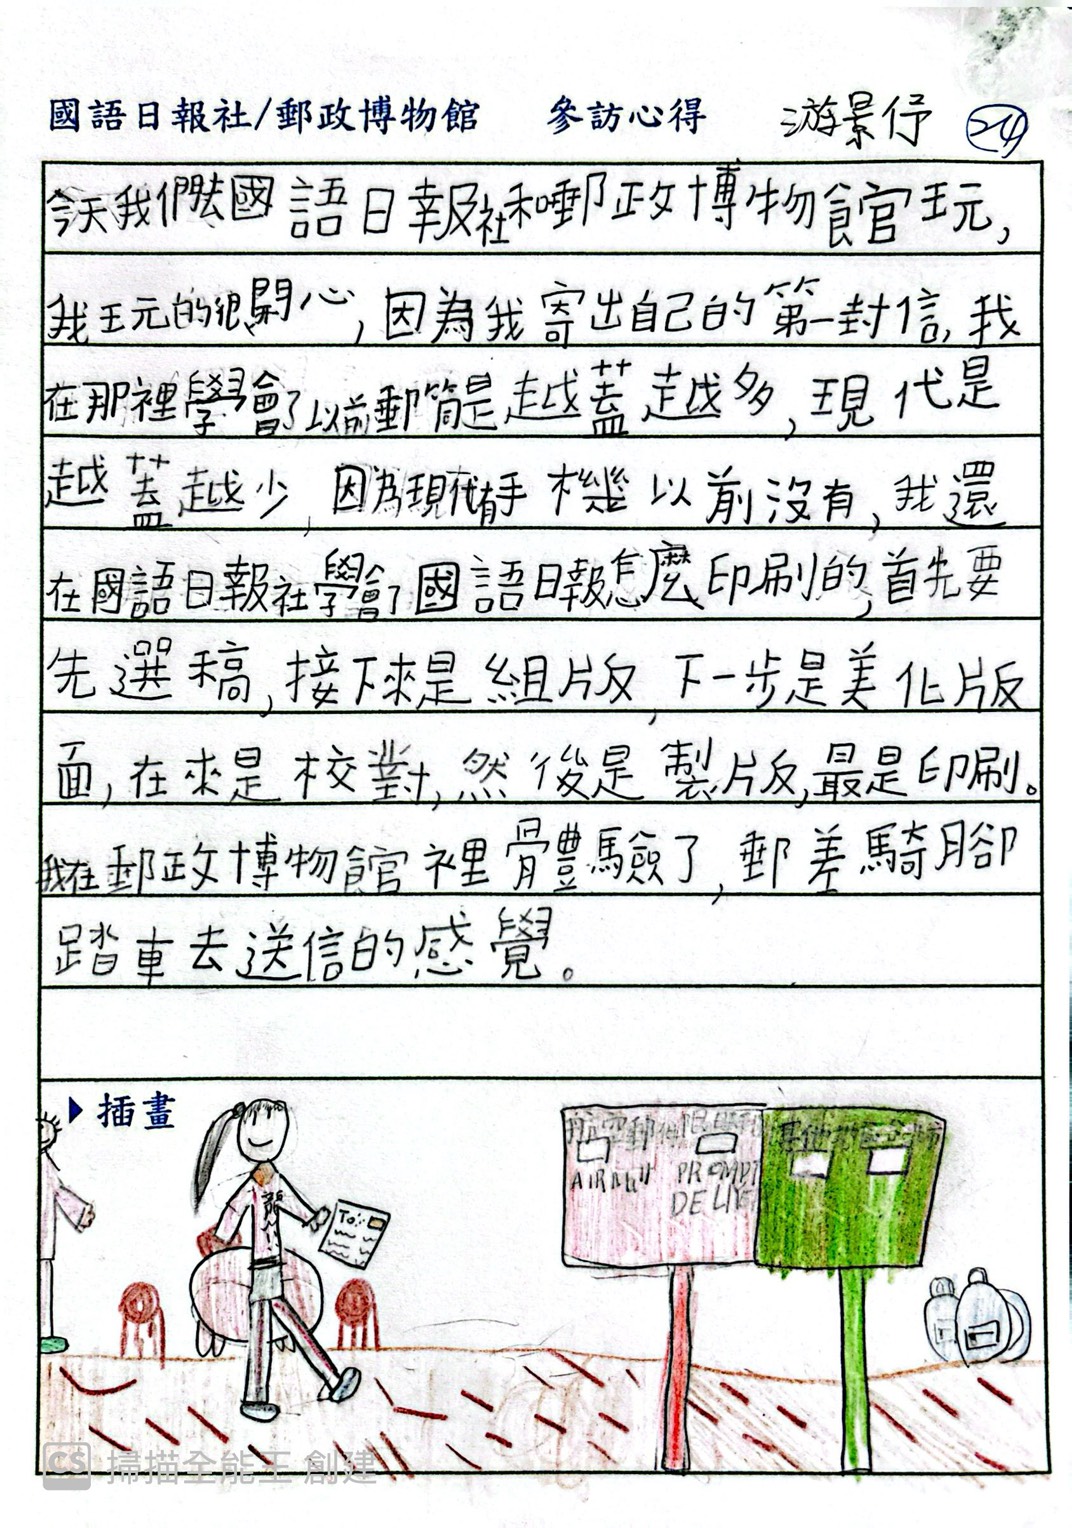 國語日報社/郵政博物館 參訪心得 游景伃 24
今天我們去國語日報社和郵政博物館玩，
我玩的很開心，因為我寄出自己的第一封信，我
在那裡學會了以前郵筒是越蓋越多，現代是
越蓋越少，因為現代有手機以前沒有，我還
在國語日報社學會了國語日報怎麼印刷的，首先要
先選稿，接下來是組版，下一步是美化版
面，在來是校對，然後是製版，最是印刷。
我在郵政博物館裡體驗了，郵差騎腳
踏車去送信的感覺。
插畫
To:
航空郵件 限時
AIRMAIL PROMPT
DELIVE
其他
CS 掃描全能王 創建